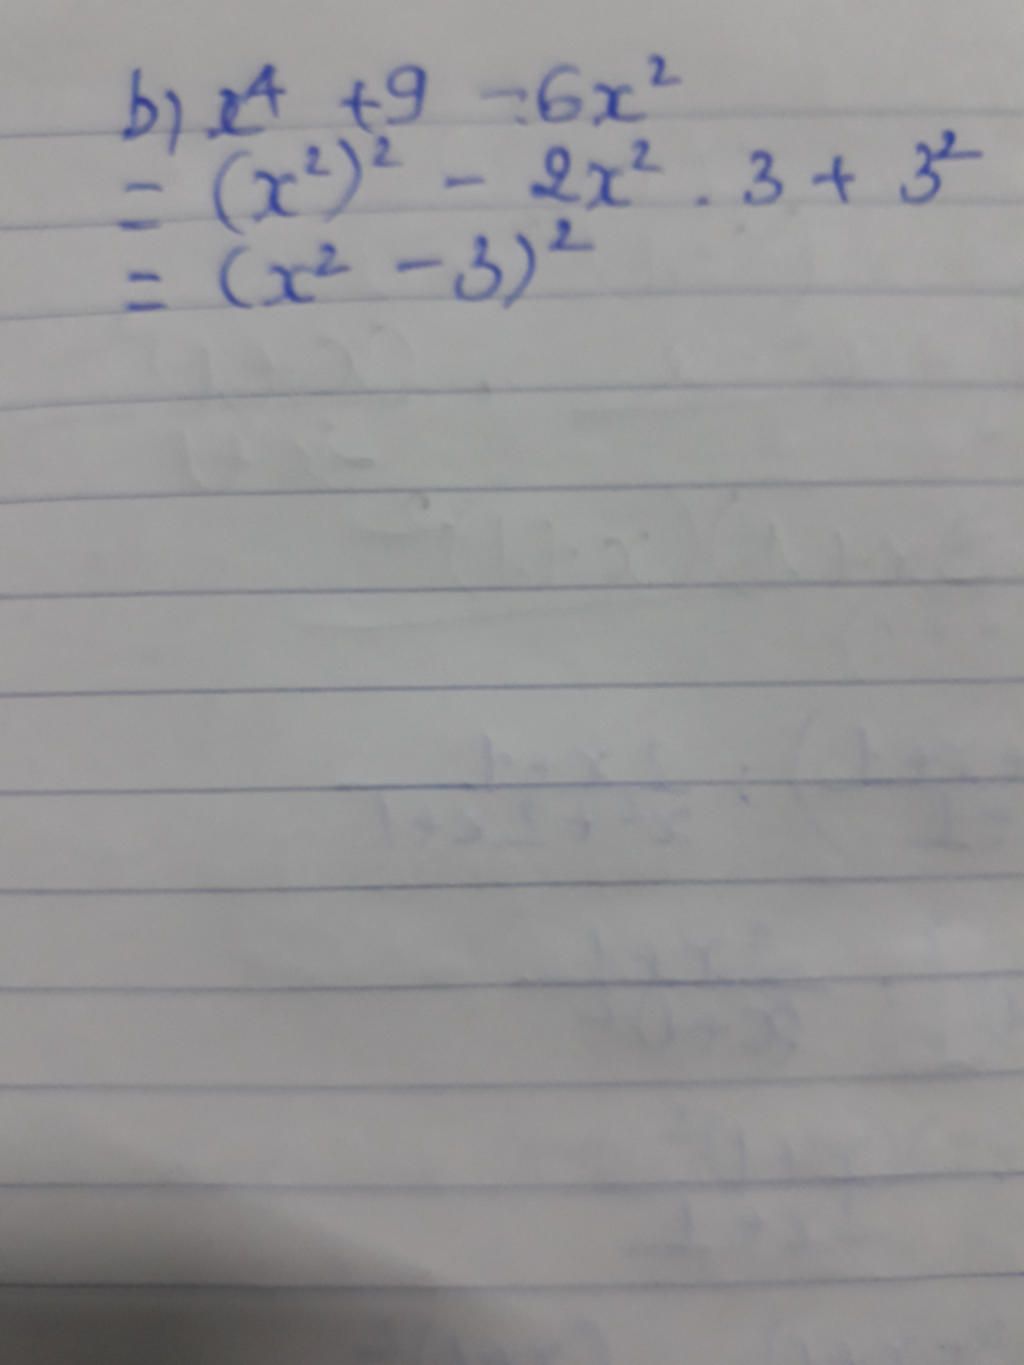 b) x⁴ + 9 - 6x²
= (x²)² - 2x² . 3 + 3²
= (x² - 3)²